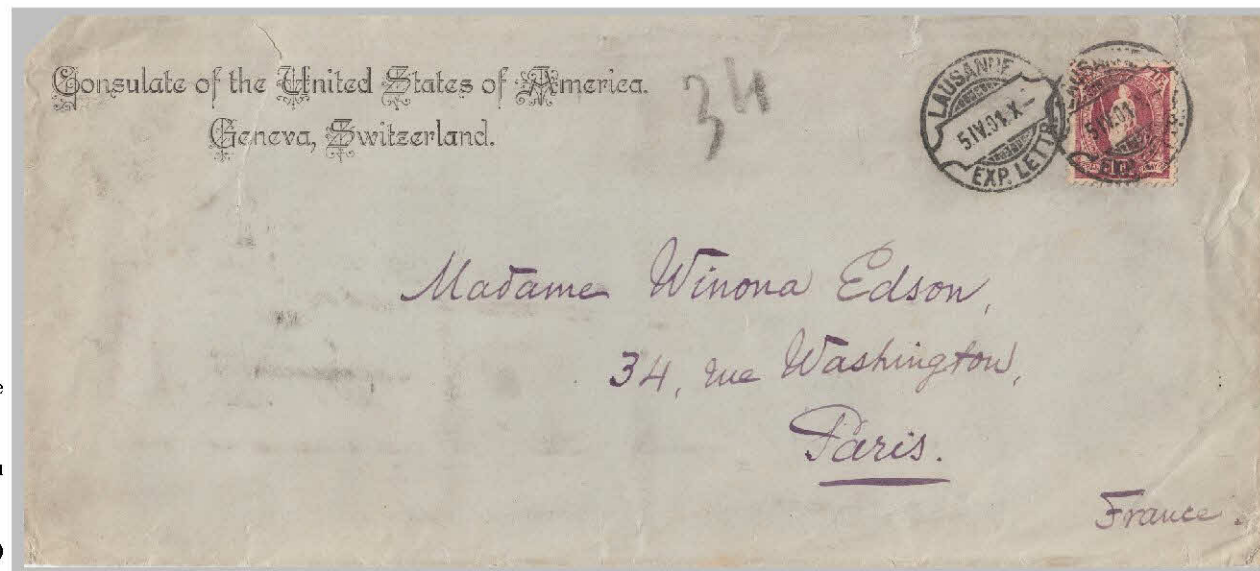 Consulate of the United States of America.
Geneva, Switzerland.
34
LAUSANNE
5.IV.01.X-
EXP. LETTR
5.IV.01
Madame Winona Edson,
34, rue Washington,
Paris.
France.